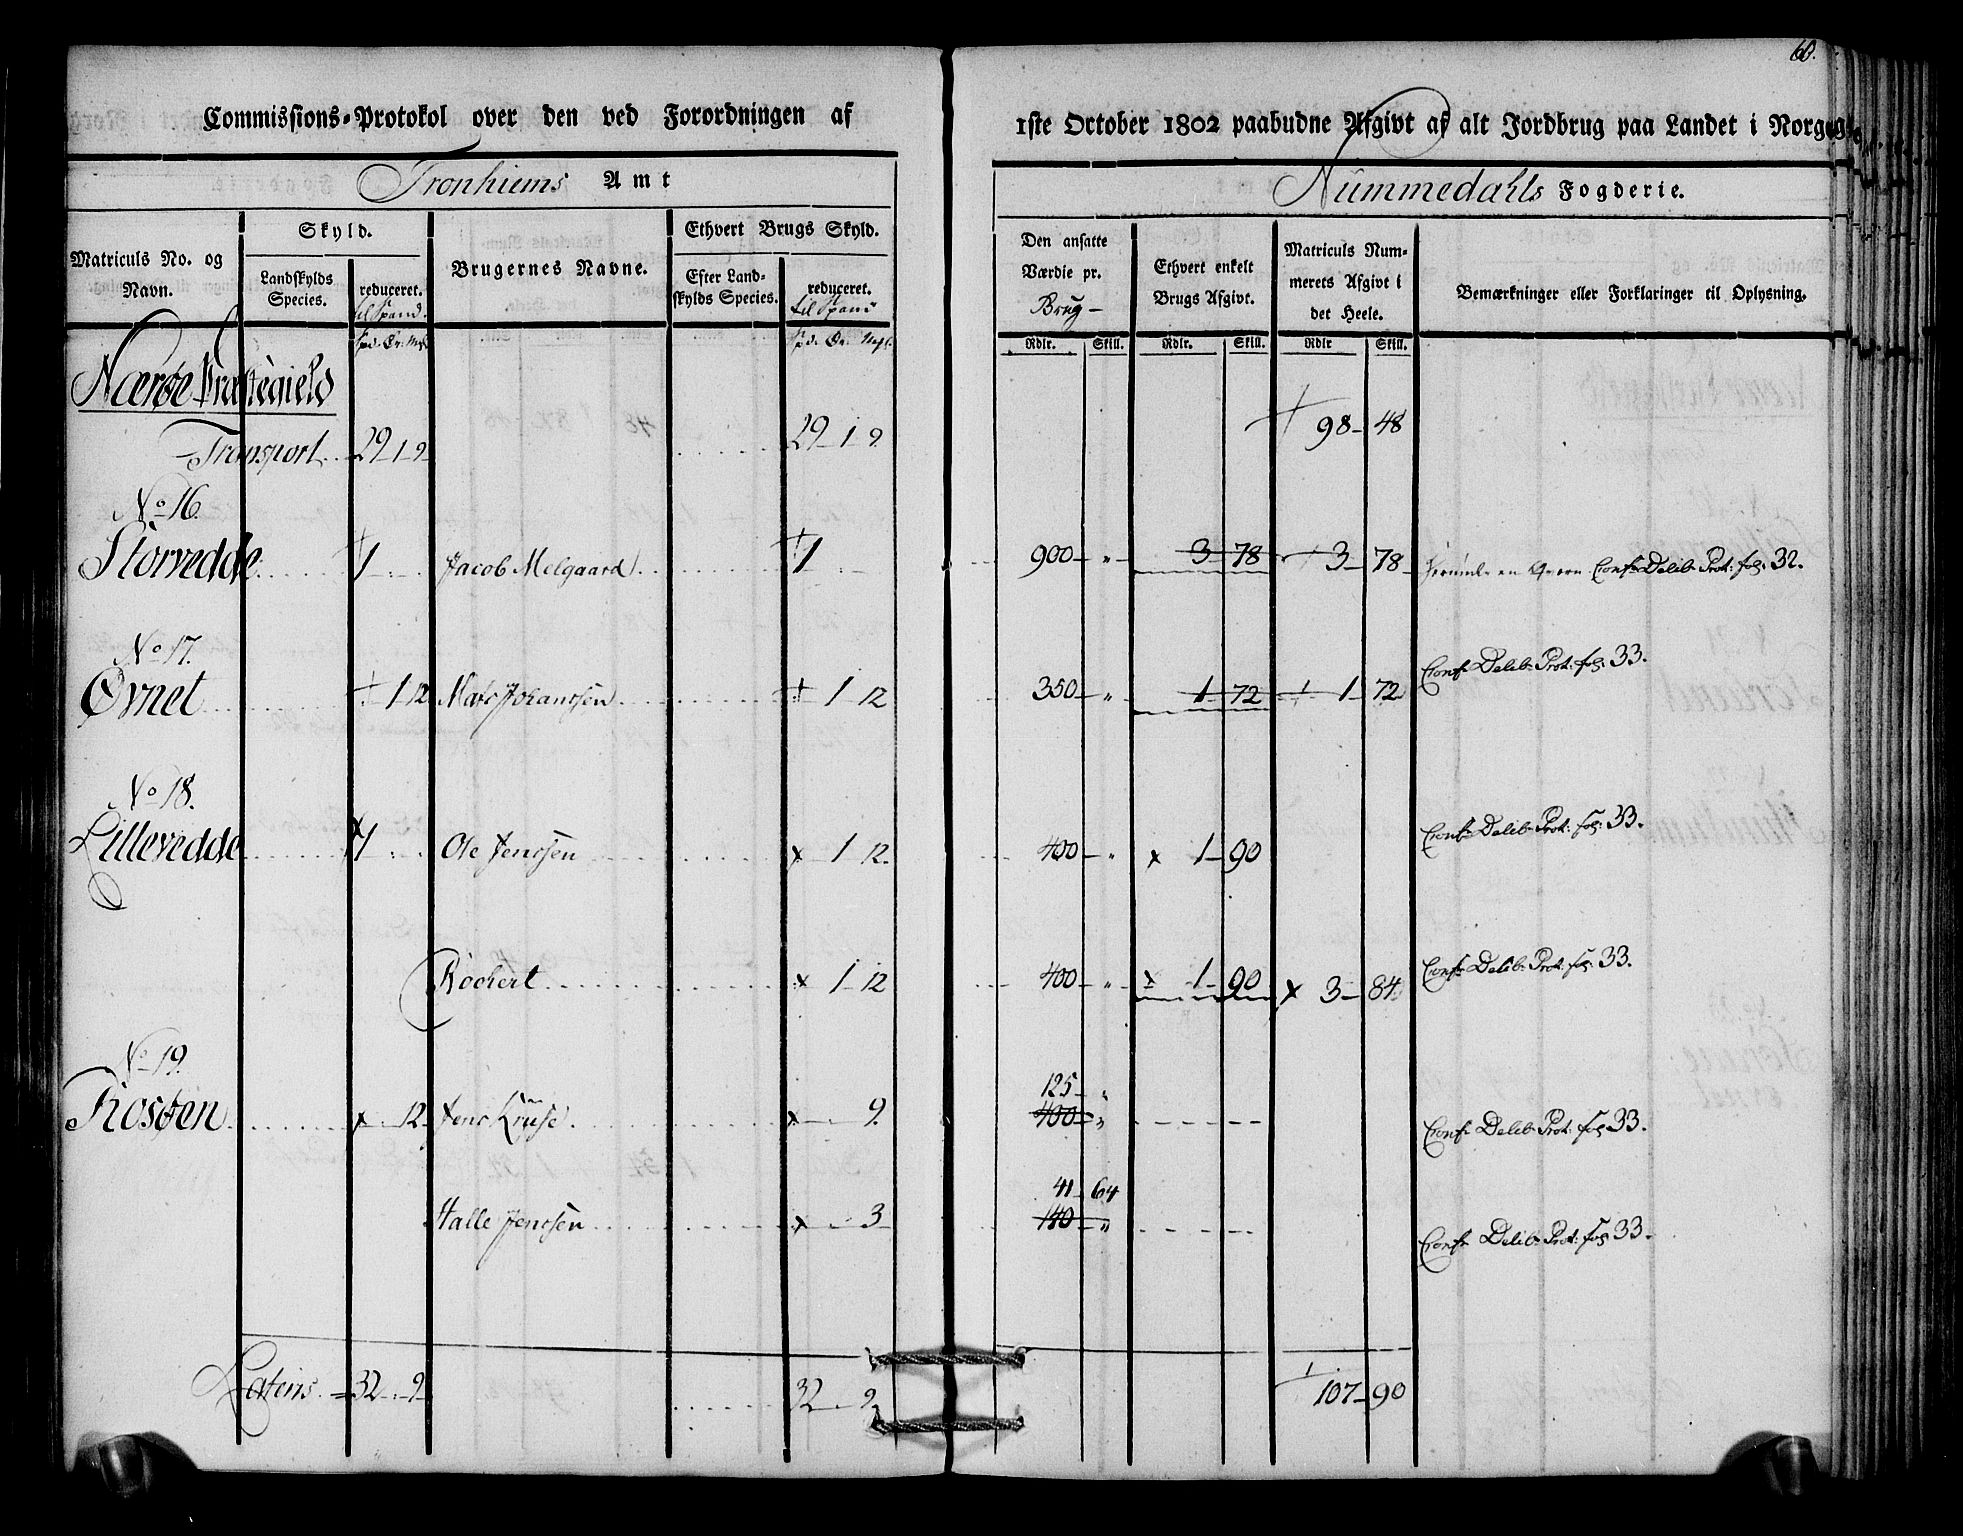 60.
Commissions-Protokol over den ved Forordningen af 1ste October 1802 paabudne Afgivt af alt Jordbrug paa Landet i Norge
Tronhiems Amt
Nummedahls Fogderie.
Matriculs No. og Navn.
Skyld.
Landskylds Species.
reduceret. til Spand.
Brugernes Navne.
Ethvert Brugs Skyld.
Efter Landskylds Species.
reduceret. til Spand
Den ansatte Værdie pr. Brug
Ethvert enkelt Brugs Afgivt.
Matriculs Nummerets Afgivt i det Heele.
Bemærkninger eller Forklaringer til Oplysning.
Spd. Ør. Mgl. Spd. Ør. Mgl. Rdlr. Skill. Rdlr. Skill. Rdlr Skill.
Nærøe Præstegield
Transport 29 1 9 29 1 9 98 48
No 16.
Storvedde 1 Jacob Melgaard 1 900 " 3 78 3 78 Conf. Delib. Prot: fol: 32.
No 17.
Øvnet 1 12 Mats Johansen 1 12 350 " 1 72 1 72 Conf. Delib. Prot: fol: 33.
No 18.
Lillevedde 1 Ole Jenssen 1 12 400 " 1 90 Conf. Delib. Prot: fol: 33.
Rochert 1 12 400 " 1 90 3 84 Conf. Delib. Prot: fol: 33.
No 19.
125 "
Rosøen 12 Jens Kruse 9. 400 " Conf. Delib. Prot: fol 33.
41 64
Halle Jenssen 3 140 " Conf. Delib. Prot: fol 33.
Lateris 32 9 32 9 107 90